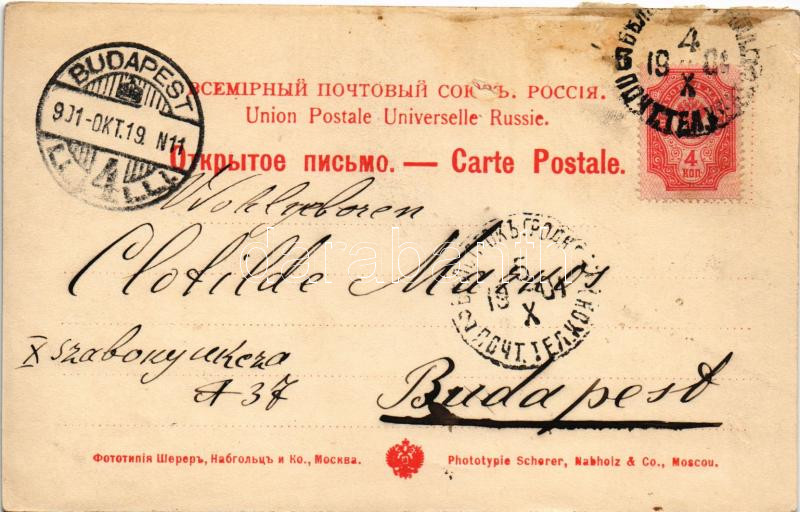 BUDAPEST
901-OKT.19. N11
4
4
19 01
X
ВСЕМІРНЫЙ ПОЧТОВЫЙ СОЮЗЪ. РОССІЯ.
Union Postale Universelle Russie.
Открытое письмо. — Carte Postale.
4
КОП.
Wohlgeboren
Clotilde Magnos
БѢЛОСТОКЪ ГРОДН.
19 01
X
ПОЧТ. ТЕЛ. КОН.
X
A 37
Budapest
darabanth
Фототипія Шереръ, Набгольцъ и Ко., Москва.
Phototypie Scherer, Nabholz & Co., Moscou.